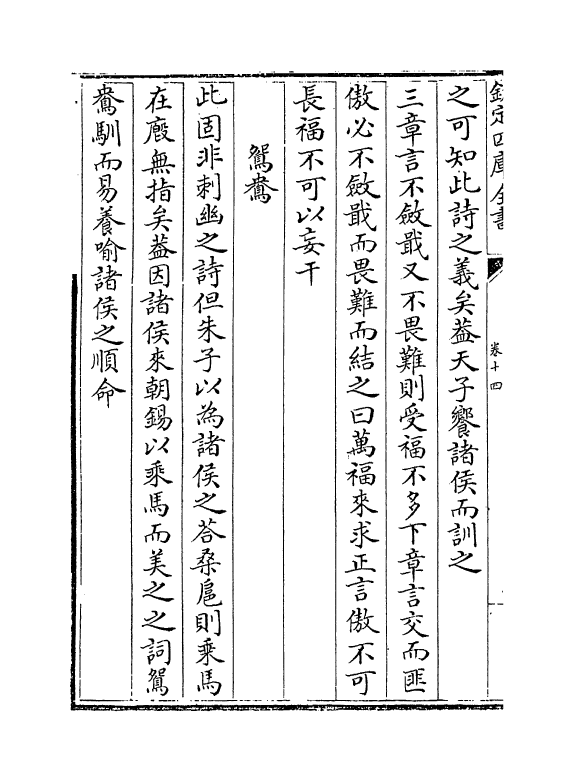 欽定四庫全書
卷十四
之可知此詩之義矣葢天子饗諸侯而訓之
三章言不斂戢又不畏難則受福不多下章言交而匪
傲必不斂戢而畏難而結之曰萬福來求正言傲不可
長福不可以妄干
鴛鴦
此固非刺幽之詩但朱子以為諸侯之荅桑扈則乘馬
在廐無指矣葢因諸侯來朝錫以乘馬而美之之詞鴛
鴦馴而易養喻諸侯之順命